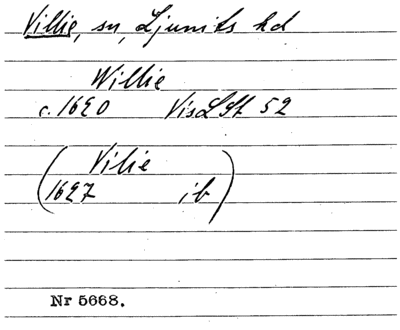 Villie, sn, Ljunits hd
Willie
c. 1620 VisLSt 52
(Vilie
1627 ib)
Nr 5668.